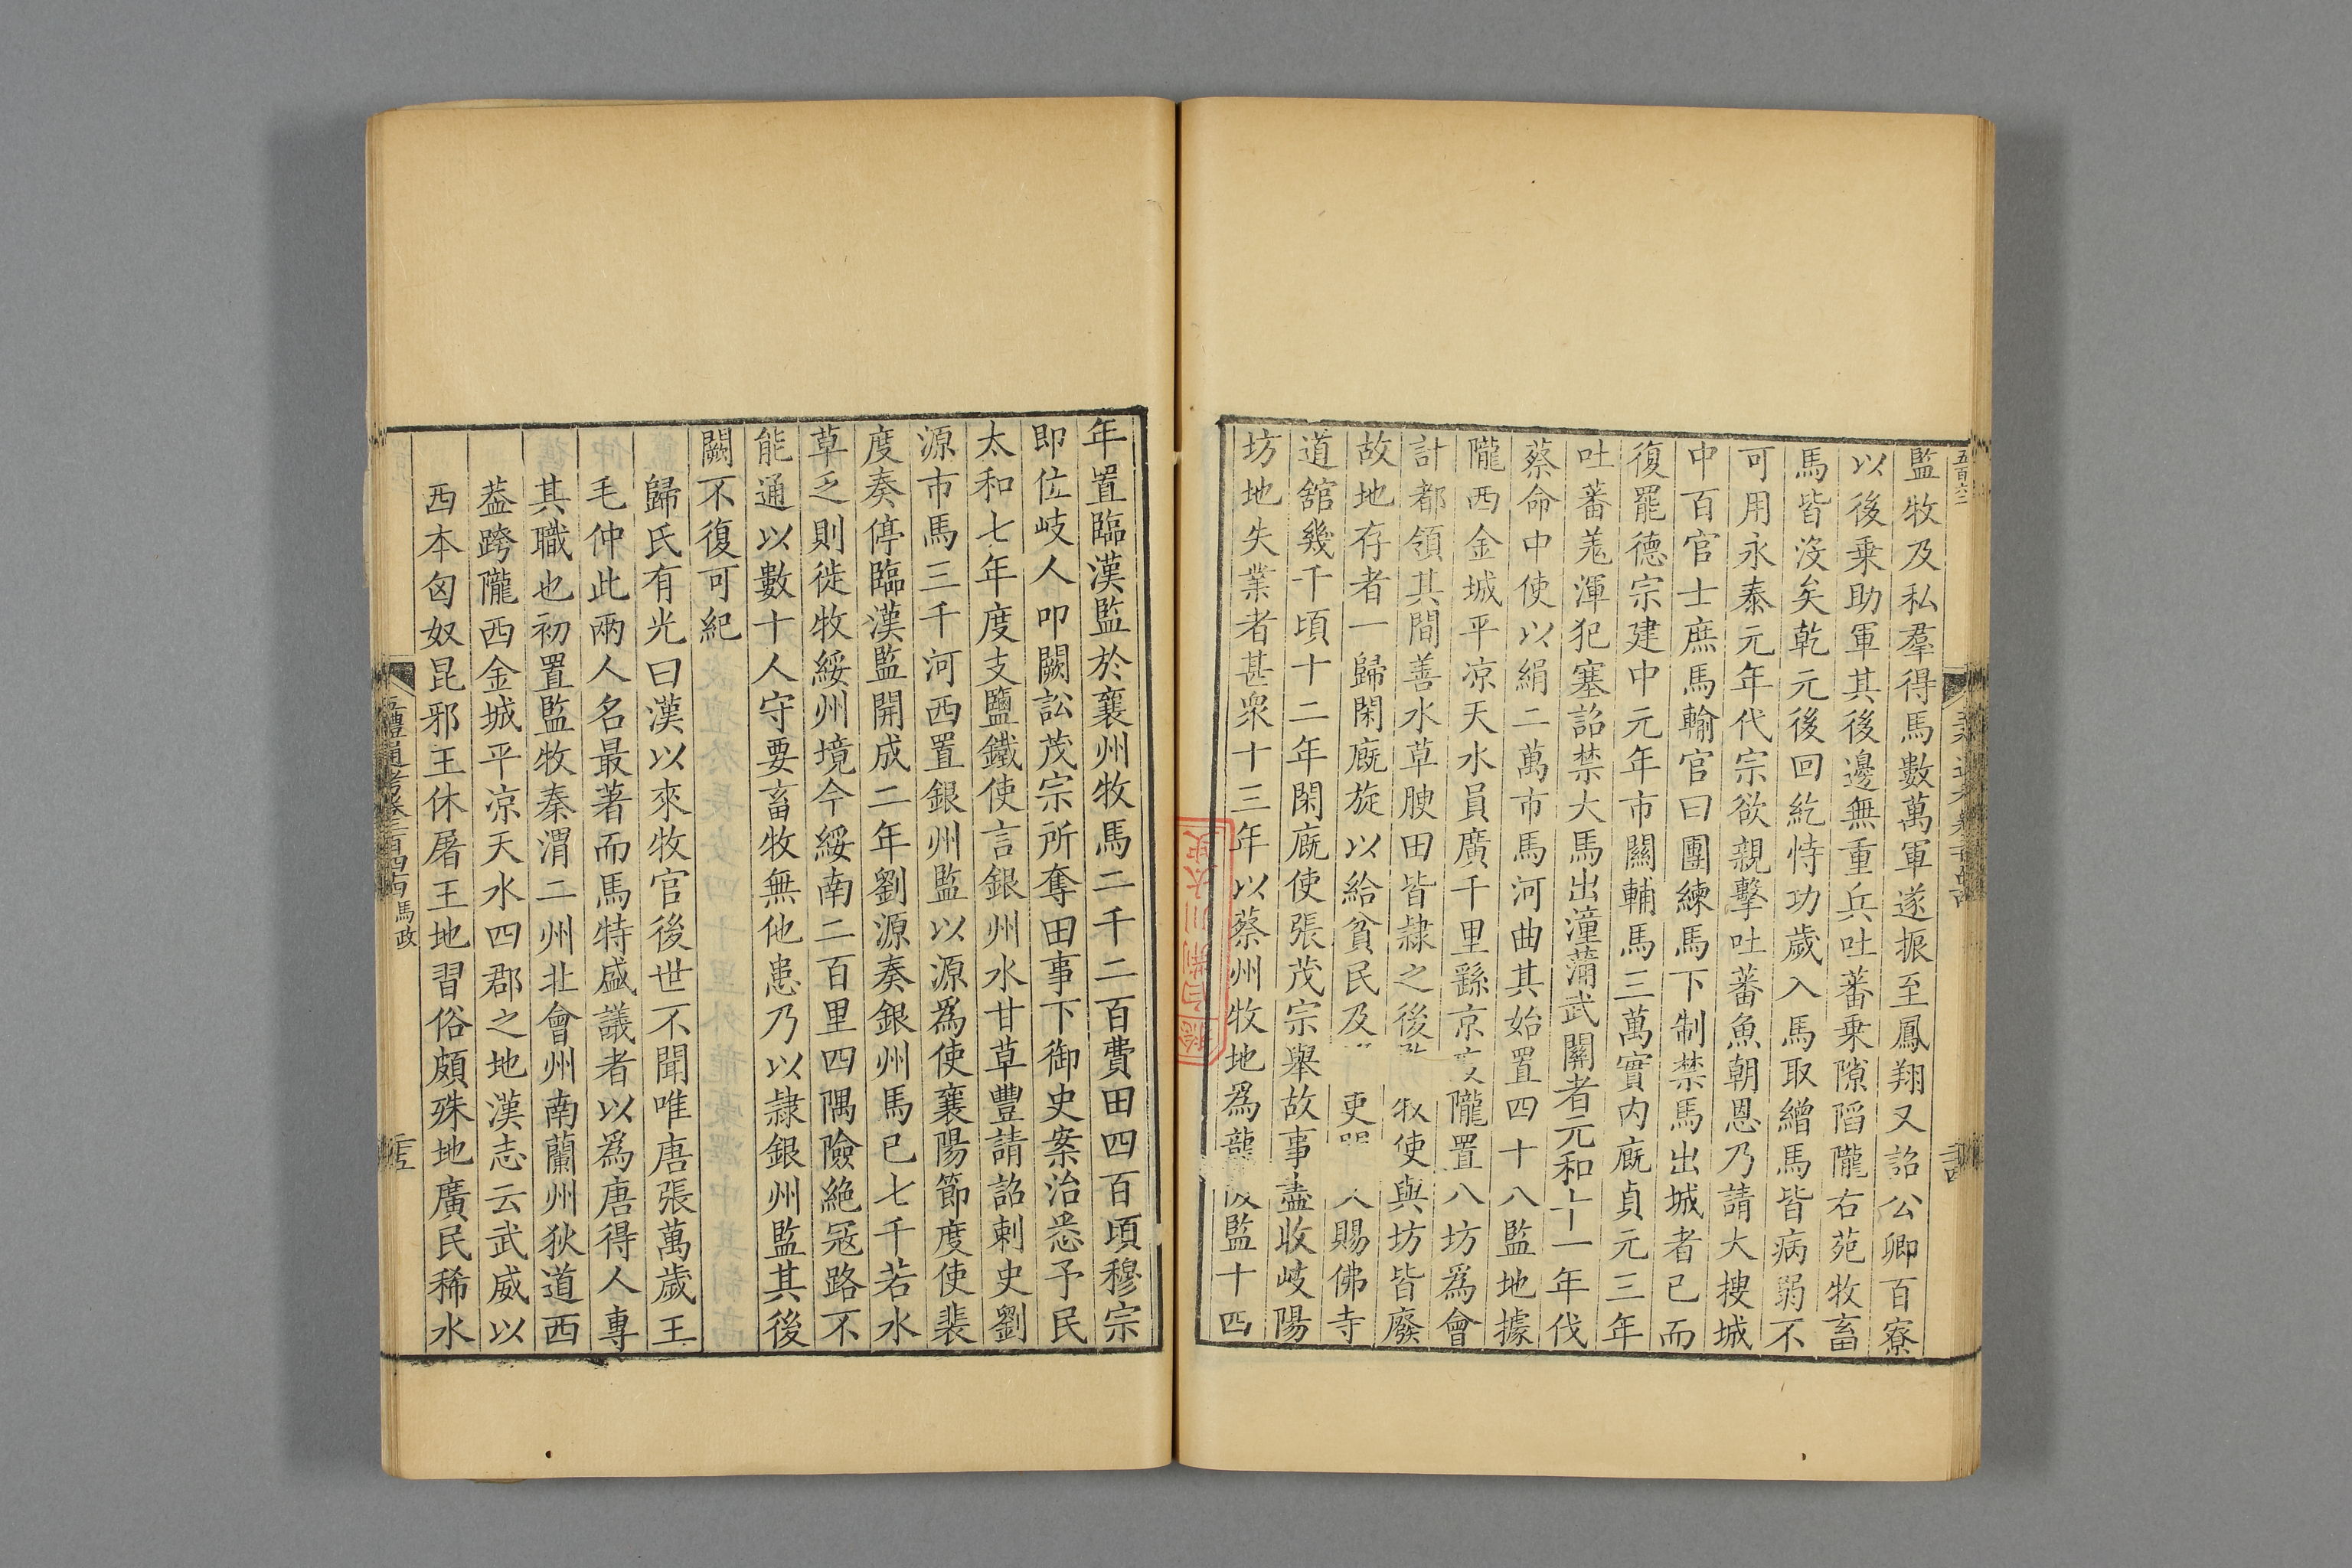 五百六二
監牧及私羣得馬數萬軍遂振至鳳翔又詔公卿百寮
以後乗助軍其後邊無重兵吐蕃乗隙䧟隴右苑牧畜
馬皆沒矣乾元後回紇恃功歲入馬取繒馬皆病弱不
可用永泰元年代宗欲親擊吐蕃魚朝恩乃請大搜城
中百官士庶馬輸官曰團練馬下制禁馬出城者已而
復罷德宗建中元年市關輔馬三萬實内廐貞元三年
吐蕃羗渾犯塞詔禁大馬出潼蒲武關者元和十一年伐
蔡命中使以絹二萬市馬河曲其始置四十八監地據
隴西金城平凉天水員廣千里繇京隴置八坊爲會
計都領其間善水草腴田皆隷之後使與坊皆廢
故地存者一歸閑廐旋以給貧民及吏賜佛寺
道舘幾千頃十二年閑廐使張茂宗舉故事盡收岐陽
坊地失業者甚衆十三年以蔡州牧地爲龍陂監十四
年置臨漢監於襄州牧馬二千二百費田四百頃穆宗
即位岐人叩闕訟茂宗所奪田事下御史案治悉予民
太和七年度支鹽鐵使言銀州水甘草豐請詔刺史劉
源市馬三千河西置銀州監以源爲使襄陽節度使裴
度奏停臨漢監開成二年劉源奏銀州馬已七千若水
草乏則徙牧綏州境今綏南二百里四隅險絶宼路不
能通以數十人守要畜牧無他患乃以隷銀州監其後
闕不復可紀
歸氏有光曰漢以來牧官後世不聞唯唐張萬歲王
毛仲此兩人名最著而馬特盛議者以爲唐得人專
其職也初置監牧秦渭二州北會州南蘭州狄道西
葢跨隴西金城平凉天水四郡之地漢志云武威以
西本匈奴昆邪王休屠王地習俗頗殊地廣民稀水
五禮通考卷二百四十四 馬政